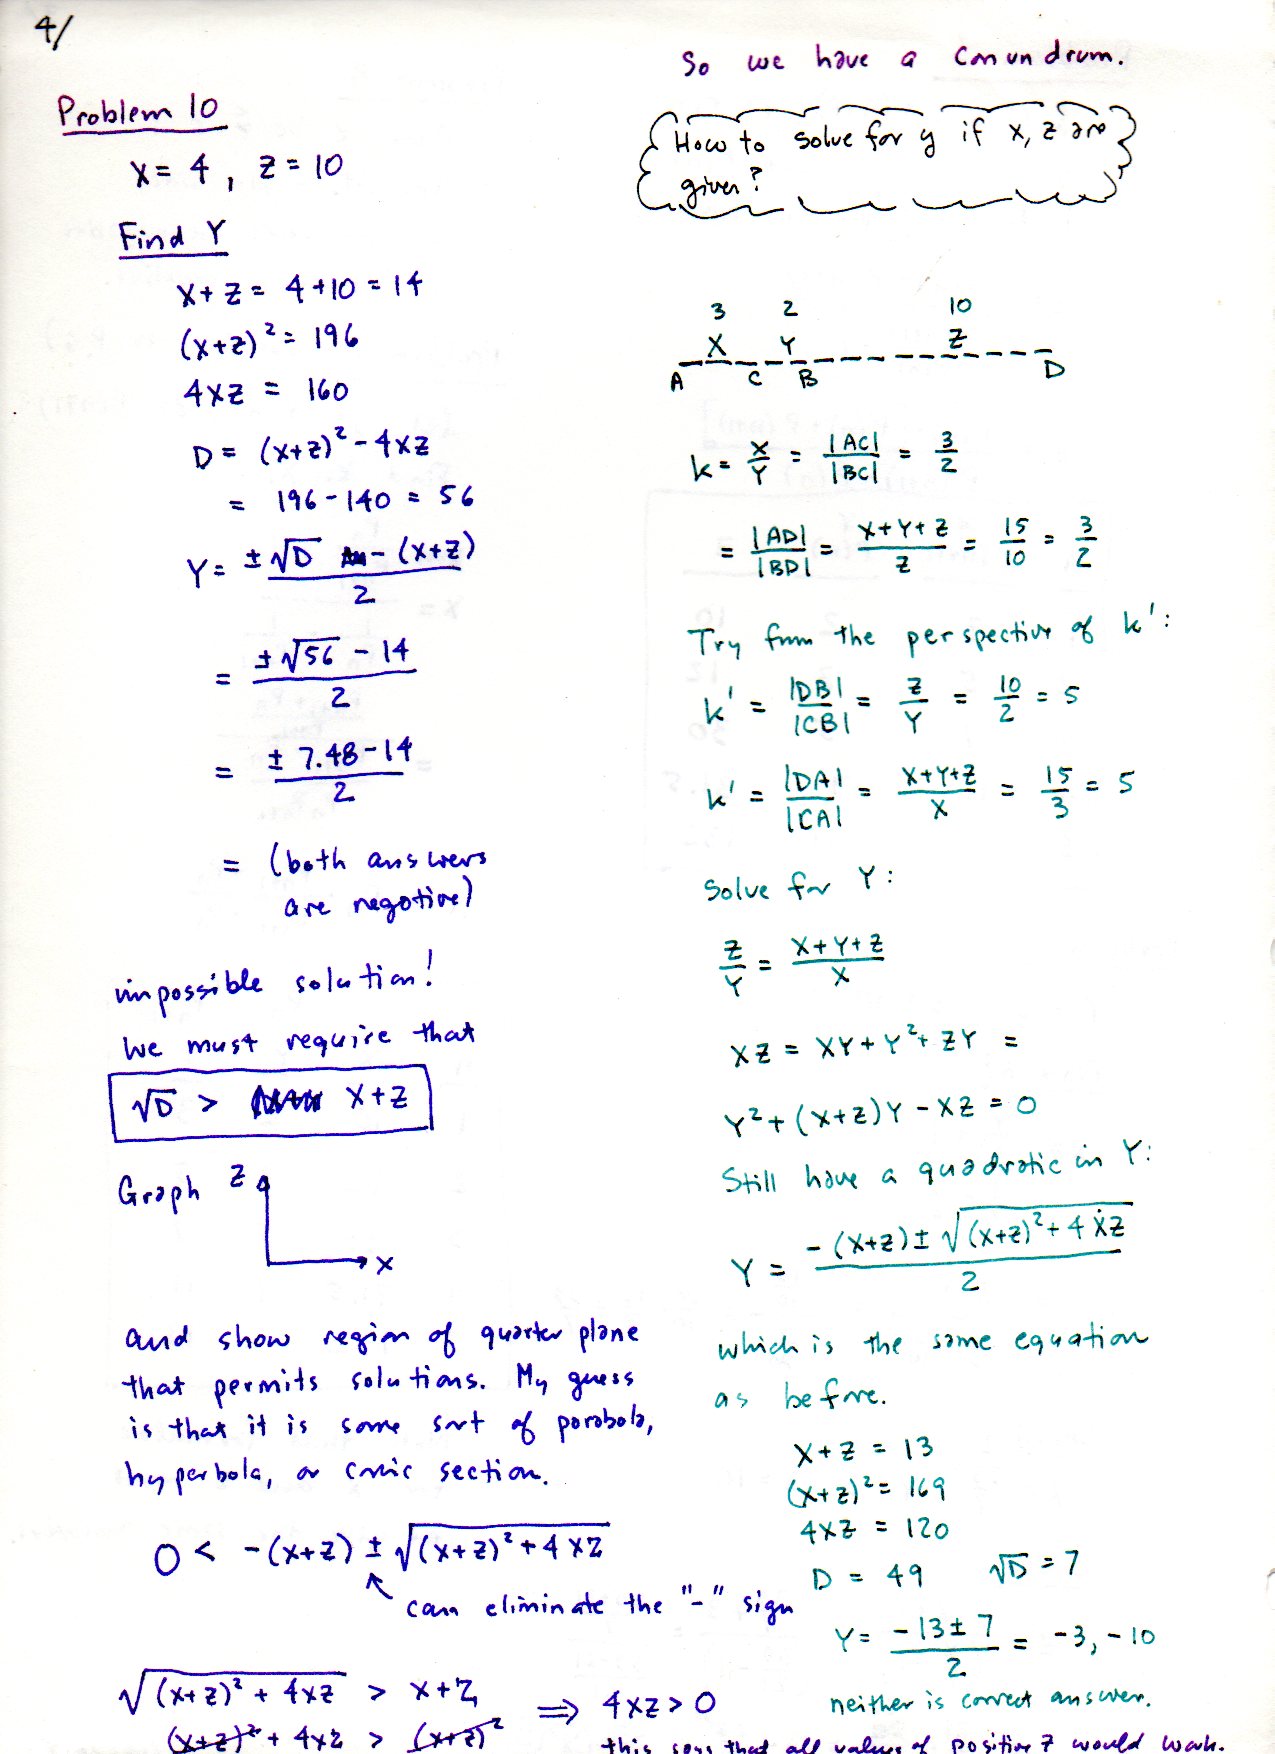 4/
Problem 10
x = 4 , z = 10
Find Y
x + z = 4 + 10 = 14
(x+z)² = 196
4xz = 160
D = (x+z)² - 4xz
= 196 - 140 = 56
Y = ±√D - (x+z) / 2
= ±√56 - 14 / 2
= ± 7.48 - 14 / 2
= (both answers
are negative)
impossible solution!
We must require that
√D > x+z
Graph z
x
and show region of quarter plane
that permits solutions. My guess
is that it is some sort of parabola,
hyperbola, or conic section.
0 < -(x+z) ± √(x+z)² + 4xz
can eliminate the "-" sign
√(x+z)² + 4xz > x+z ⟹ 4xz > 0
(x+z)² + 4xz > (x+z)²
this says that all values of positive z would work.
So we have a conundrum.
How to solve for y if x, z are
given?
3 2 10
X Y Z
A C B D
k = X/Y = |AC|/|BC| = 3/2
= |AD|/|BD| = X+Y+Z/Z = 15/10 = 3/2
Try from the perspective of k':
k' = |DB|/|CB| = Z/Y = 10/2 = 5
k' = |DA|/|CA| = X+Y+Z/X = 15/3 = 5
Solve for Y:
Z/Y = X+Y+Z/X
XZ = XY + Y² + ZY =
Y² + (X+Z)Y - XZ = 0
Still have a quadratic in Y:
Y = -(X+Z) ± √(X+Z)² + 4XZ / 2
which is the same equation
as before.
X + Z = 13
(X+Z)² = 169
4XZ = 120
D = 49 √D = 7
Y = -13 ± 7 / 2 = -3, -10
neither is correct answer.